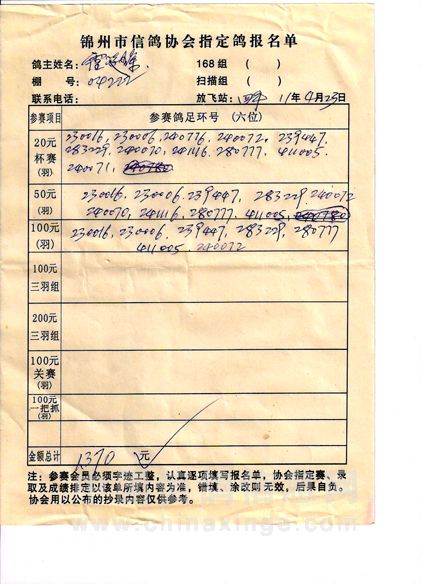 锦州市信鸽协会指定鸽报名单
鸽主姓名： 168组 （ ）
棚 号： 04222 扫描组 （ ）
联系电话： 放飞站： 11年4月23日
参赛项目 参赛鸽足环号 （六位）
20元 杯赛 (羽) 230016、230006、240776、240072、239447、
283229、240070、241116、280777、411005、
240071、
50元 (羽) 230016、230006、239447、283229、240072
240070、241116、280777、411005、
100元 (羽) 230016、230006、239447、283229、280777
411005、240072
100元 三羽组
200元 三羽组
100元 关赛 (羽)
100元 一把抓 (羽)
金额总计 1370 元
注：参赛会员必须字迹工整，认真逐项填写报名单，协会指定赛、录
取及成绩排定以该单所填内容为准，错填、涂改则无效，后果自负。
协会用以公布的抄录内容仅供参考。
www.chinaxinge.com